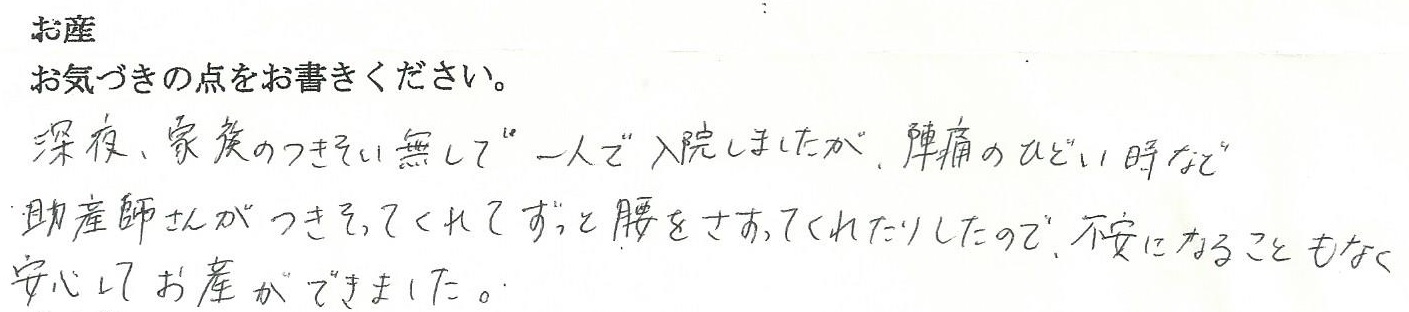 お産
お気づきの点をお書きください。
深夜、家族のつきそい無しで一人で入院しましたが、陣痛のひどい時など
助産師さんがつきそってくれてずっと腰をさすってくれたりしたので、不安になることもなく
安心してお産ができました。